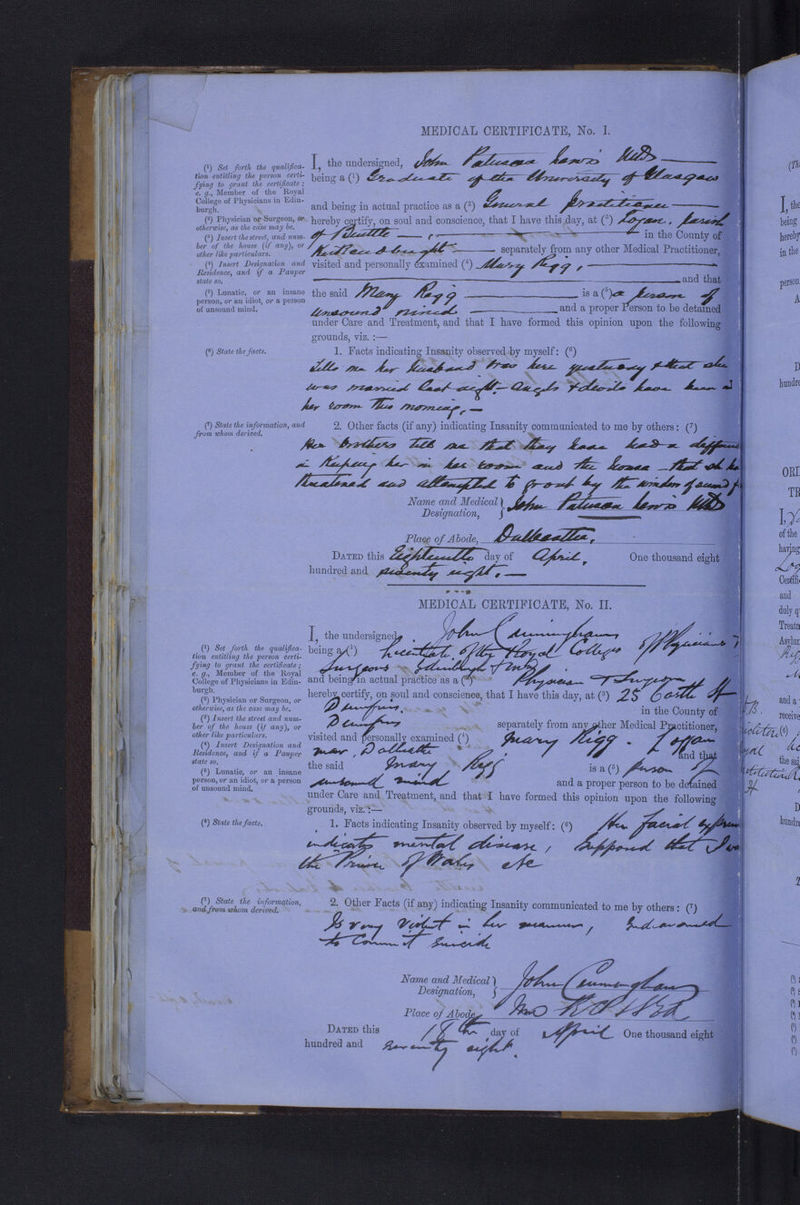 MEDICAL CERTIFICATE, No. I.
(¹) Set forth the qualifica-
tion entitling the person certi-
fying to grant the certificate;
e. g., Member of the Royal
College of Physicians in Edin-
burgh.
(²) Physician or Surgeon, or
otherwise, as the case may be.
(³) Insert the street, and num-
ber of the house (if any), or
other like particulars.
(⁴) Insert Designation and
Residence, and if a Pauper
state so.
(⁵) Lunatic, or an insane
person, or an idiot, or a person
of unsound mind.
I, the undersigned, John Paterson Lewis MD
being a (¹) Graduate of the University of Glasgow
and being in actual practice as a (²) General Practitioner
hereby certify, on soul and conscience, that I have this day, at (³) Logan, parish
of Buittle in the County of
Kirkcudbright separately from any other Medical Practitioner,
visited and personally examined (⁴) Mary Rigg,
and that
the said Mary Rigg is a (⁵) a person of
unsound mind and a proper Person to be detained
under Care and Treatment, and that I have formed this opinion upon the following
grounds, viz. :—
(⁶) State the facts.
1. Facts indicating Insanity observed by myself: (⁶)
Tells me her husband was here yesterday & that she
was married last night – Angels & devils have been in
her room this morning, —
(⁷) State the information, and
from whom derived.
2. Other facts (if any) indicating Insanity communicated to me by others: (⁷)
Her brothers tell me that they have had a
in keeping her in her room and the house – that she
threatened and attempted to go out by the window
Name and Medical Designation, John Paterson Lewis MD
Place of Abode, Dalbeattie,
DATED this Eighteenth day of April, One thousand eight
hundred and seventy eight. —
MEDICAL CERTIFICATE, No. II.
(¹) Set forth the qualifica-
tion entitling the person certi-
fying to grant the certificate;
e. g., Member of the Royal
College of Physicians in Edin-
burgh.
(²) Physician or Surgeon, or
otherwise, as the case may be.
(³) Insert the street and num-
ber of the house (if any), or
other like particulars.
(⁴) Insert Designation and
Residence, and if a Pauper
state so.
(⁵) Lunatic, or an insane
person, or an idiot, or a person
of unsound mind.
I, the undersigned, John Cunningham
being a (¹) Licentiate of the Royal Colleges of Physicians &
Surgeons Edinburgh
and being in actual practice as a (²) Physician & Surgeon
hereby certify, on soul and conscience, that I have this day, at (³) 25 Castle St
Dumfries. in the County of
Dumfries separately from any other Medical Practitioner,
visited and personally examined (⁴) Mary Rigg. Logan
near Dalbeattie and that
the said Mary Rigg is a (⁵) person of
unsound mind and a proper person to be detained
under Care and Treatment, and that I have formed this opinion upon the following
grounds, viz. :—
(⁶) State the facts.
1. Facts indicating Insanity observed by myself: (⁶) Her facial
indicates mental disease, supposed that I was
the Prince of Wales etc
(⁷) State the information,
and from whom derived.
2. Other Facts (if any) indicating Insanity communicated to me by others: (⁷)
Is very violent in her manner, Endeavoured
to Commit Suicide
Name and Medical Designation, John Cunningham
Place of Abode,
DATED this 18th day of April One thousand eight
hundred and seventy eight.